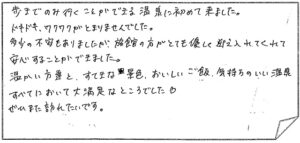 歩きでのみ行くことができる温泉に初めて来ました。
ドキドキ、ワクワクがとまりませんでした。
多少の不安もありましたが、旅館の方がとても優しく迎え入れてくれて
安心することができました。
温かい方達と、すてきな景色、おいしいご飯、気持ちのいい温泉
すべてにおいて大満足なところでした
ぜひまた訪れたいです。